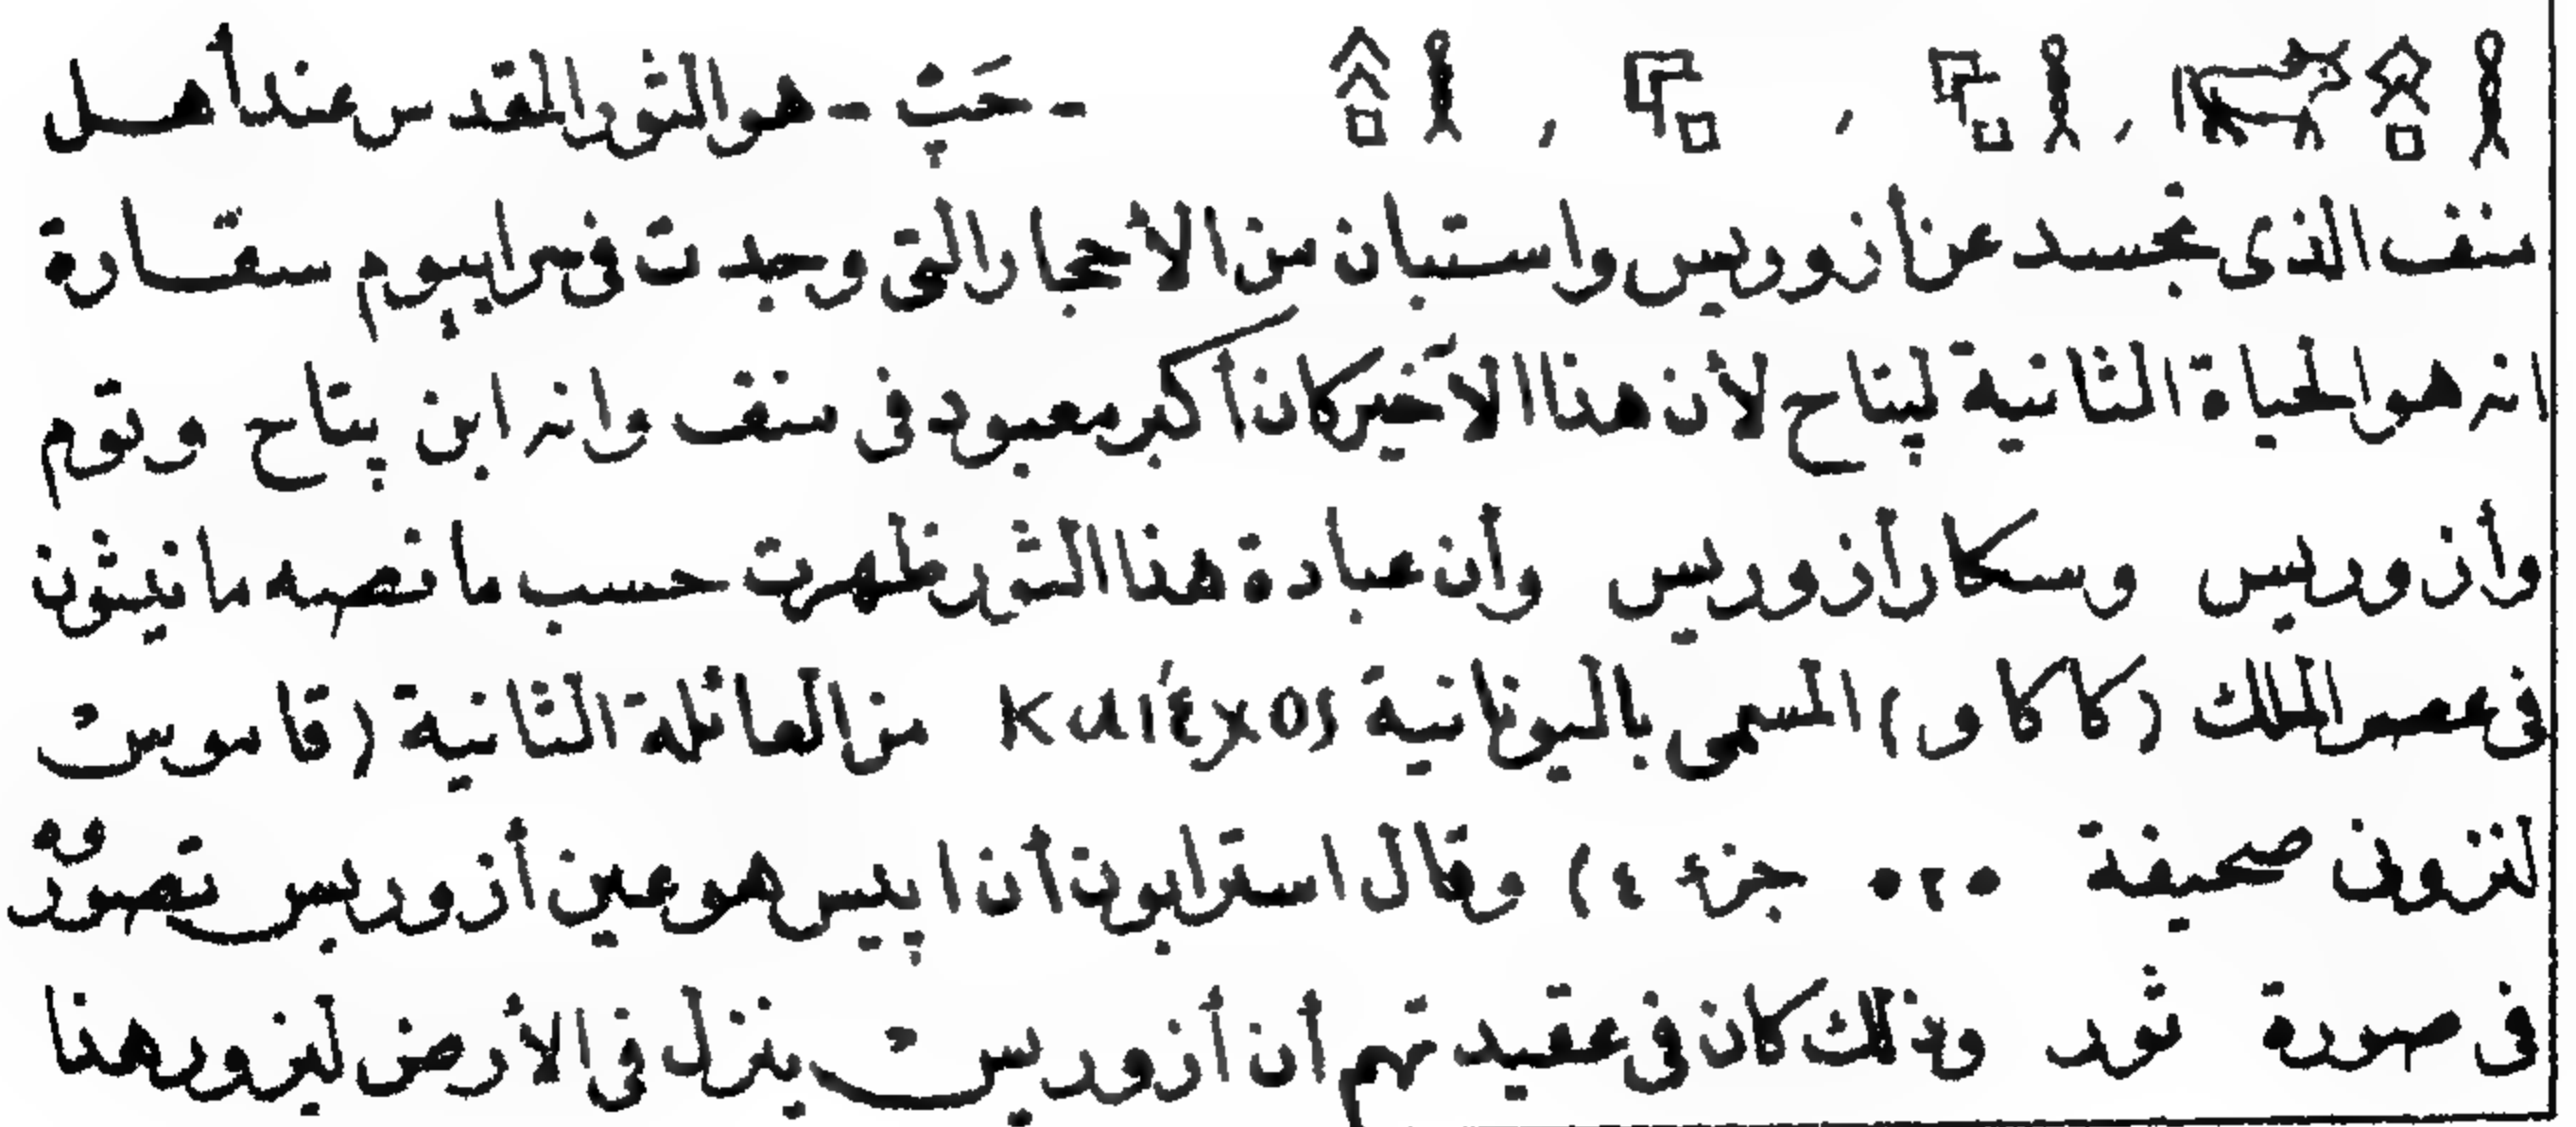 - حَپْ - هو الثور المقدس عند أهل
منف الذى تجسد عن أزوريس واستبان من الأحجار التى وجدت فى سراپيوم سقارة
انه هو الحياة الثانية لپتاح لأن هذا الأخير كان أكبر معبود فى منف وانه ابن پتاح وتوم
وأزوريس وسكار أزوريس وأن عبادة هذا الثور ظهرت حسب ما نصه مانيثون
فى عصر الملك (كاكاو) المسمى باليونانية Kαιέχος من العائلة الثانية (قاموس
لنزون صحيفة ٥٢٥ جزء ٤) وقال استرابون أن اپيس هو عين أزوريس تصوّر
فى صورة ثور وذلك كان فى عقيدتهم أن أزوريس ينزل فى الأرض ليزور هذا